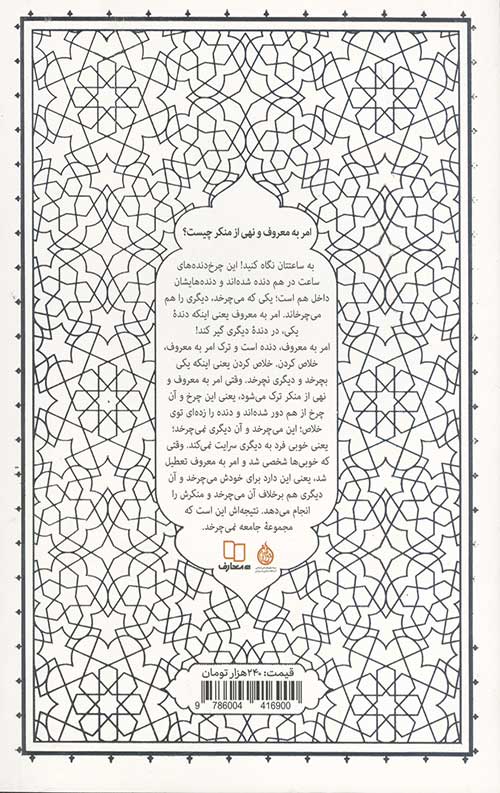 امر به معروف و نهی از منکر چیست؟
به ساعتتان نگاه کنید! این چرخ‌دنده‌های
ساعت در هم دنده شده‌اند و دنده‌هایشان
داخل هم است؛ یکی که می‌چرخد، دیگری را هم
می‌چرخاند. امر به معروف یعنی اینکه دندهٔ
یکی، در دندهٔ دیگری گیر کند!
امر به معروف، دنده است و ترک امر به معروف،
خلاص کردن. خلاص کردن یعنی اینکه یکی
بچرخد و دیگری نچرخد. وقتی امر به معروف و
نهی از منکر ترک می‌شود، یعنی این چرخ و آن
چرخ از هم دور شده‌اند و دنده را زده‌ای توی
خلاص؛ این می‌چرخد و آن دیگری نمی‌چرخد؛
یعنی خوبی فرد به دیگری سرایت نمی‌کند. وقتی
که خوبی‌ها شخصی شد و امر به معروف تعطیل
شد، یعنی این دارد برای خودش می‌چرخد و آن
دیگری هم برخلاف آن می‌چرخد و منکرش را
انجام می‌دهد. نتیجه‌اش این است که
مجموعهٔ جامعه نمی‌چرخد.
معارف
قیمت: ۲۴۰هزار تومان
9 786004 416900